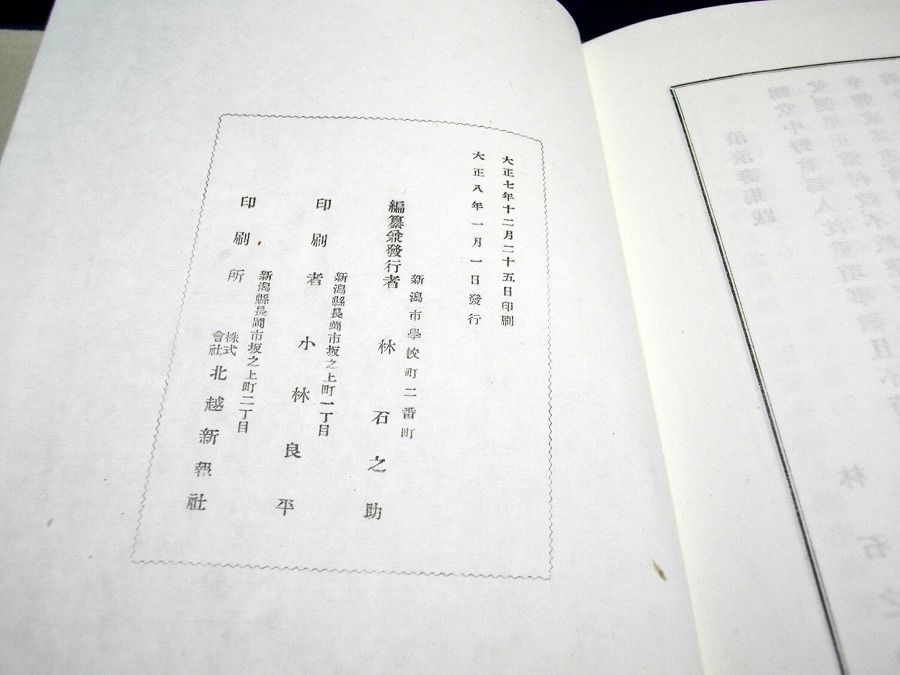 大正七年十二月二十五日印刷
大正八年一月一日發行
新潟市學校町二番町
編纂兼發行者 林石之助
新潟縣長岡市坂之上町一丁目
印刷者 小林良平
新潟縣長岡市坂之上町二丁目
印刷所 株式會社 北越新報社
林石之